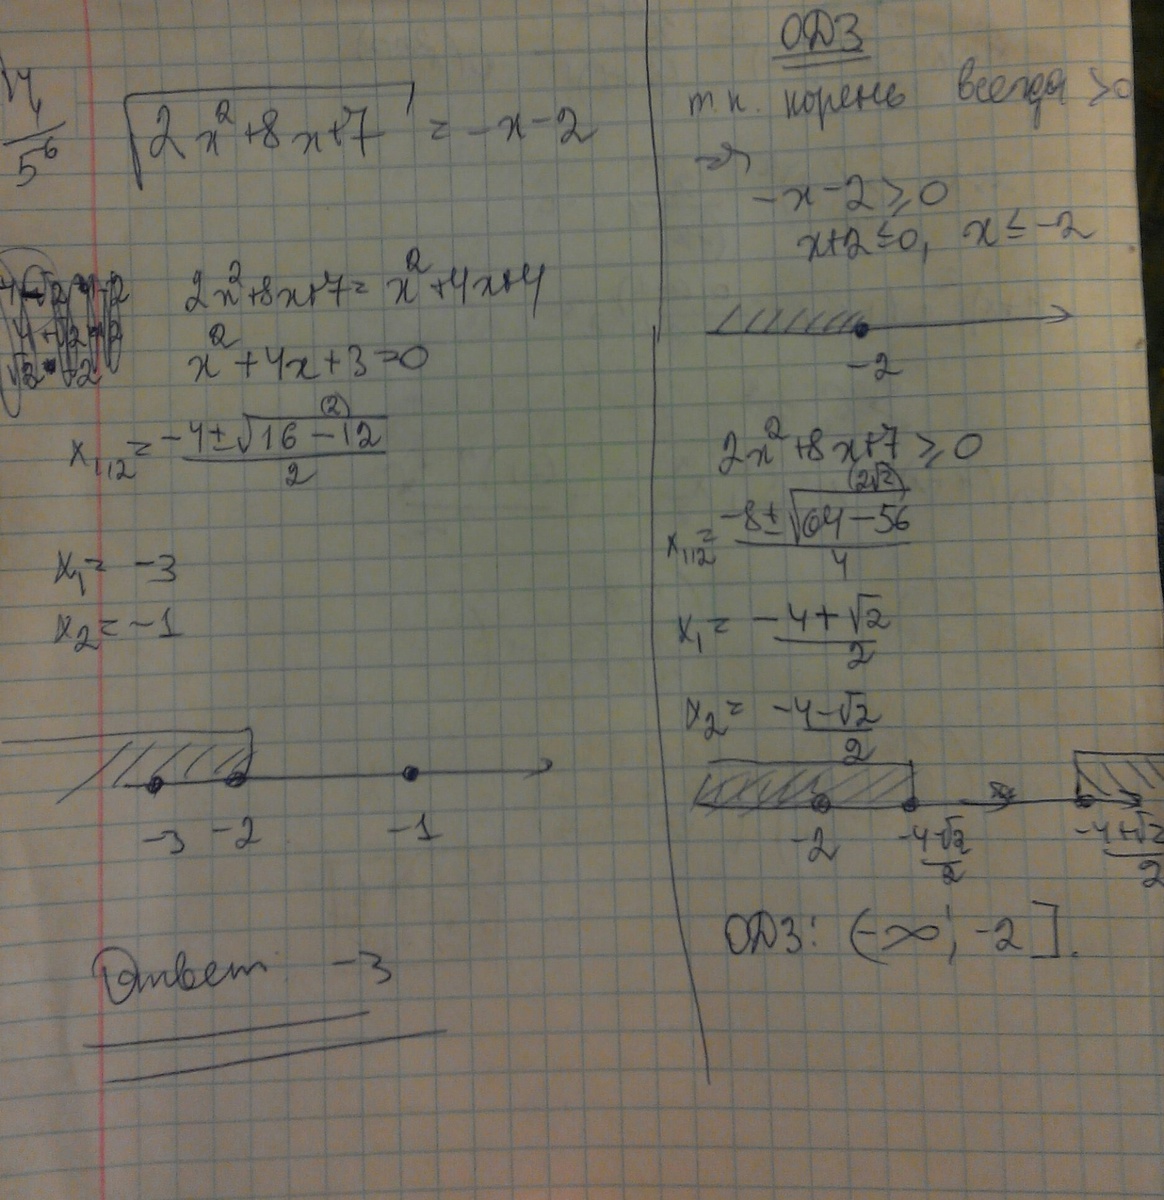 4
5⁶
√(2x²+8x+7) = -x-2
2x²+8x+7 = x²+4x+4
x²+4x+3=0
x₁,₂ = (-4±√(16-12))/2 (2)
x₁ = -3
x₂ = -1
-3 -2 -1
Ответ: -3
ОДЗ
т.к. корень всегда >0
⇒
-x-2≥0
x+2≤0, x≤-2
-2
2x²+8x+7≥0
x₁,₂ = (-8±√(64-56))/4 (2√2)
x₁ = (-4+√2)/2
x₂ = (-4-√2)/2
-2 (-4-√2)/2 (-4+√2)/2
ОДЗ: (-∞; -2].